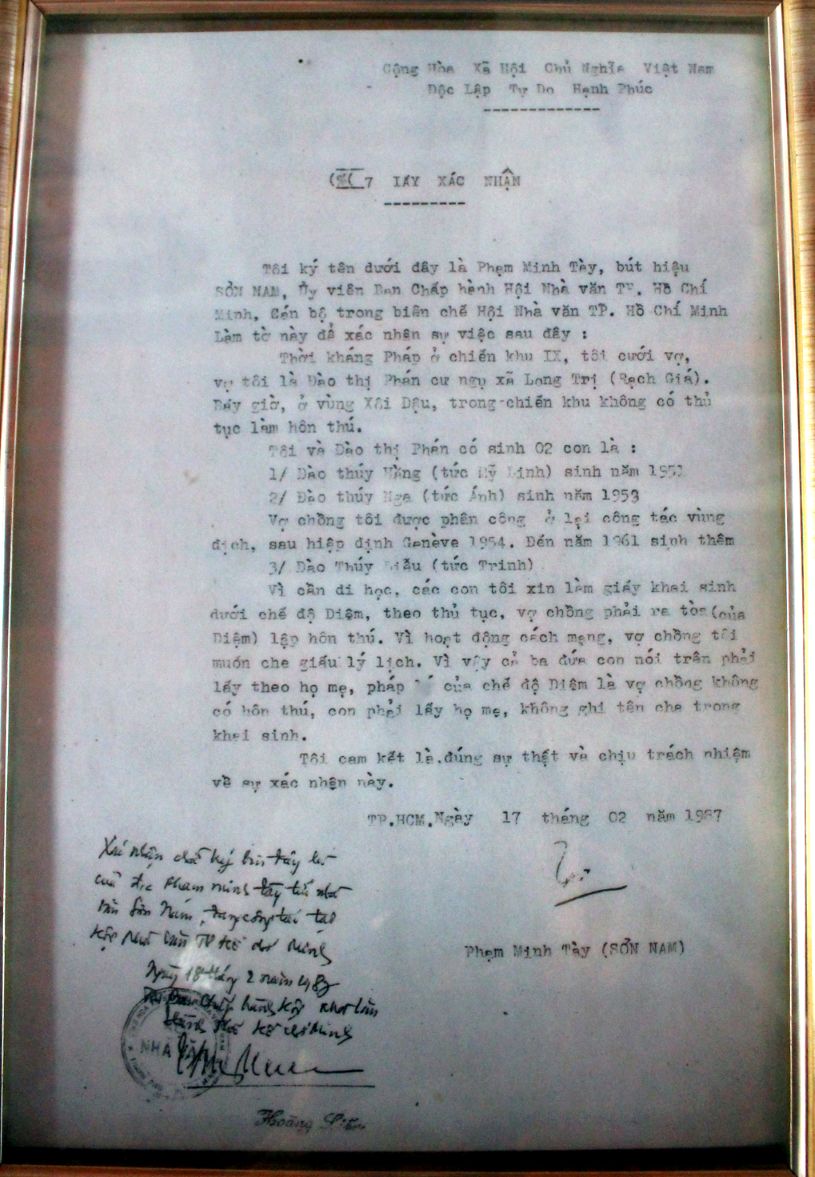 Cộng Hòa Xã Hội Chủ Nghĩa Việt Nam
Độc Lập Tự Do Hạnh Phúc
IẤY XÁC NHẬN
Tôi ký tên dưới đây là Phạm Minh Tày, bút hiệu
SƠN NAM, Ủy viên Ban Chấp hành Hội Nhà văn TP. Hồ Chí
Minh, Cán bộ trong biên chế Hội Nhà văn TP. Hồ Chí Minh
Làm tờ này để xác nhận sự việc sau đây :
Thời kháng Pháp ở chiến khu IX, tôi cưới vợ,
vợ tôi là Đào thị Phấn cư ngụ xã Long Trị (Rạch Giá).
Bấy giờ, ở vùng Xôi Đậu, trong chiến khu không có thủ
tục làm hôn thú.
Tôi và Đào thị Phấn có sinh 02 con là :
1/ Đào thúy Hằng (tức Mỹ Linh) sinh năm
2/ Đào thúy Nga (tức Ánh) sinh năm 1953
Vợ chồng tôi được phân công ở lại công tác vùng
địch, sau hiệp định Genève 1954. Đến năm 1961 sinh thêm
3/ Đào Thúy (tức Trinh)
Vì cần đi học, các con tôi xin làm giấy khai sinh
dưới chế độ Diệm, theo thủ tục, vợ chồng phải ra tòa (của
Diệm) lập hôn thú. Vì hoạt động cách mạng, vợ chồng tôi
muốn che giấu lý lịch. Vì vậy cả ba đứa con nói trên phải
lấy theo họ mẹ, pháp của chế độ Diệm là vợ chồng không
có hôn thú, con phải lấy họ mẹ, không ghi tên cha trong
khai sinh.
Tôi cam kết là đúng sự thật và chịu trách nhiệm
về sự xác nhận này.
TP.HCM.Ngày 17 tháng 02 năm 1987
Phạm Minh Tày (SƠN NAM)
Xác nhận chữ ký trên đây là
của Phạm minh Tày tức nhà
văn Sơn Nam, công tác tại
Hội Nhà văn TP Hồ chí Minh
Ngày 18 tháng 2 năm 1987
Chấp hành Hội nhà văn
Thành phố Hồ chí Minh
NHÀ VĂN
Hoàng